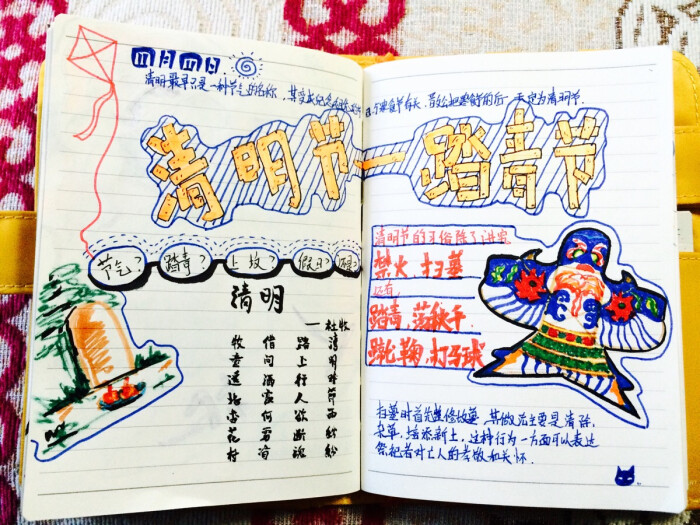 四月四日
清明最早只是一种节气的名称，其变成纪念
寒食节有关，晋文公把寒食节的后一天定为清明节.
清明节—踏青节
节气？ 踏青？ 上坟？ 假日？
清明
—杜牧
清明时节雨紛紛
路上行人欲断魂
借问酒家何
牧童遥指杏花村
清明节的习俗除了讲究
禁火、扫墓
还有
踏青、荡秋千、
蹴鞠、打马球
扫墓时首先整修坟墓，其做法主要是清除
杂草，培添新土，这种行为一方面可以表达
祭祀者对亡人的孝敬和关怀.